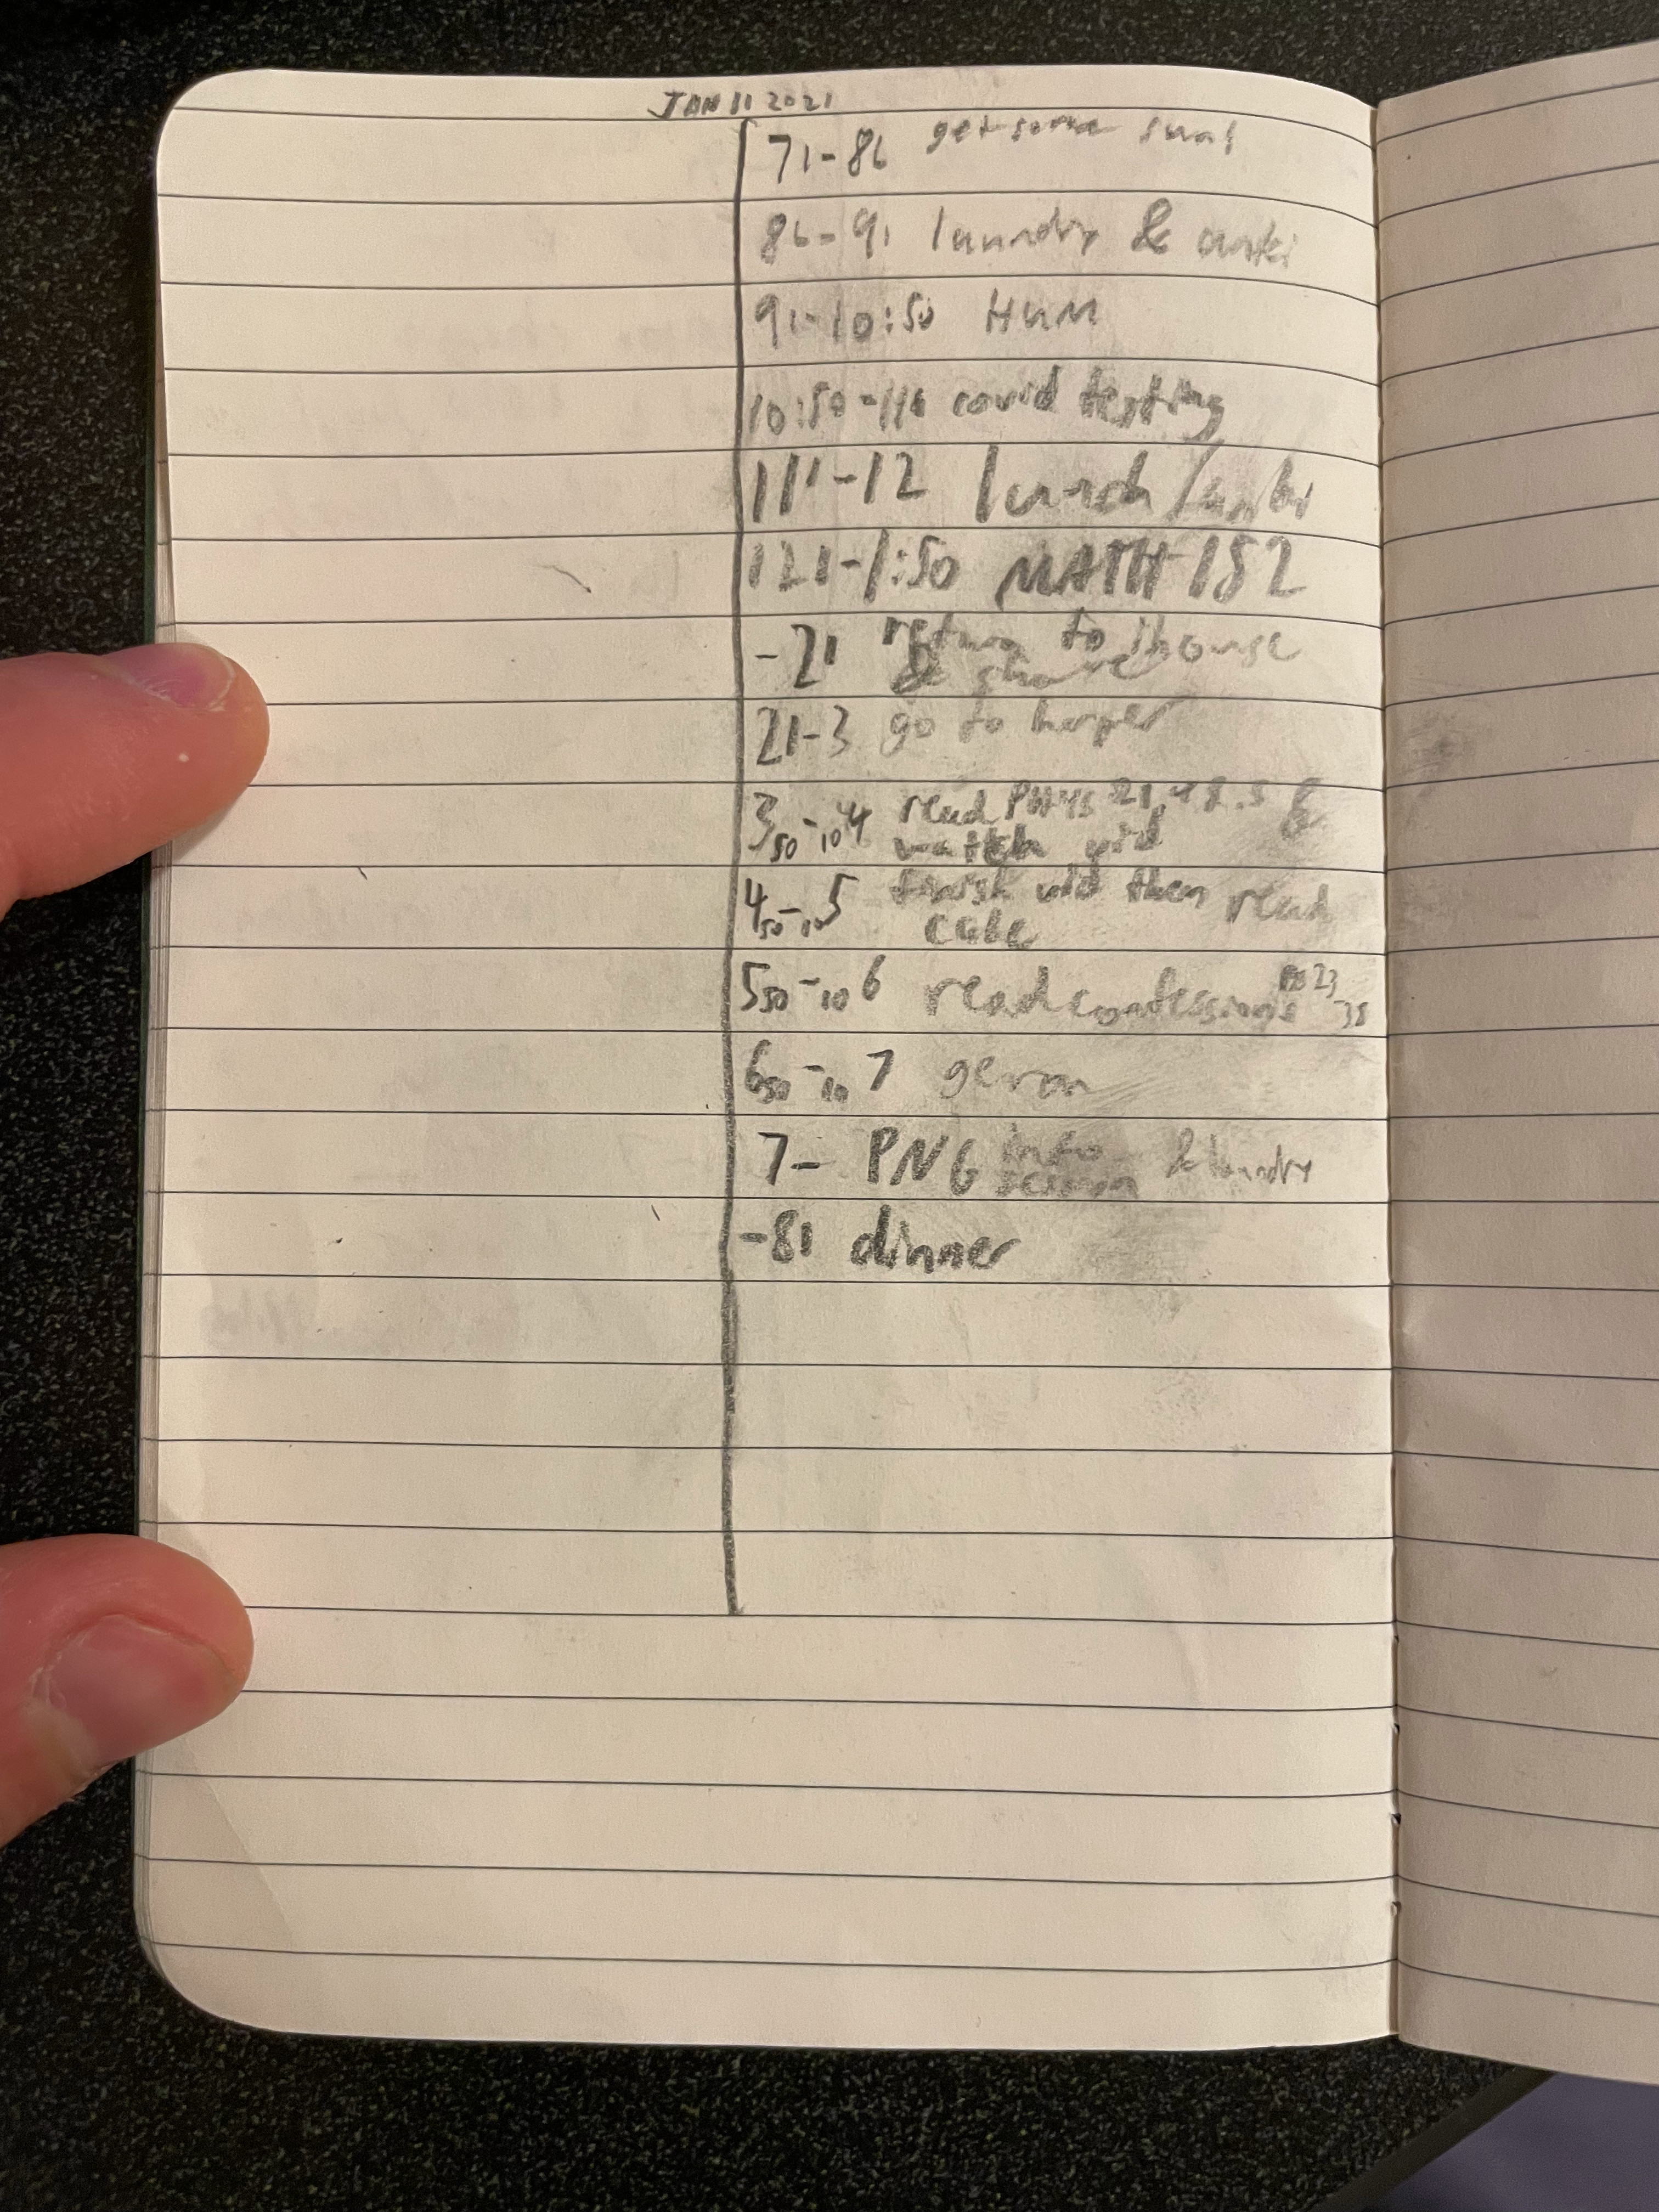 JAN 11 2021
71-86 get some
86-91 laundry & anki
91-10:50 HUM
10:50-116 covid testing
111-12 lunch/anki
121-1:50 MATH 152
-21 return to ihouse
& shave
21-3 go to harper
3 50-10 4 read PHYS &
watch vid
4 50-10 5 finish vid then read
5 50-10 6 read confessions PG 23
-38
6 50-10 7
7- PNG info
session & laundry
-81 dinner